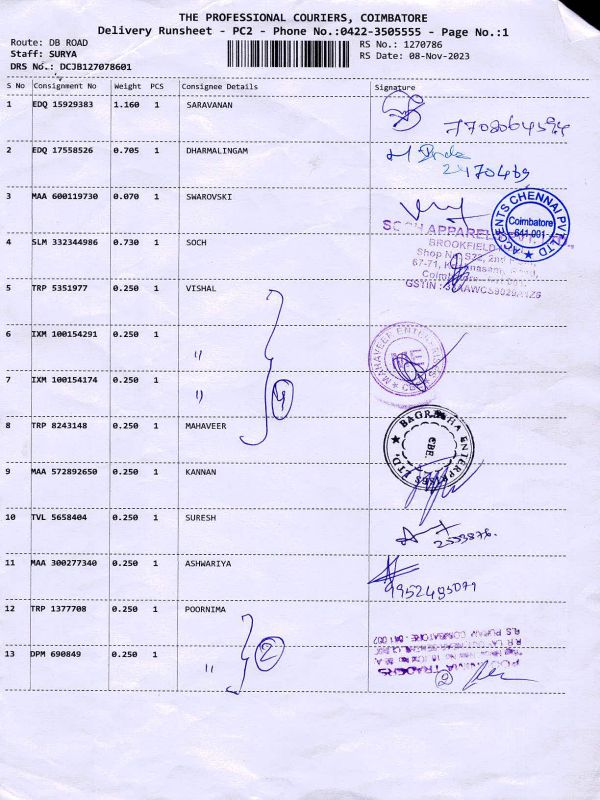 THE PROFESSIONAL COURIERS, COIMBATORE
Delivery Runsheet - PC2 - Phone No.:0422-3505555 - Page No.:1
Route: DB ROAD
RS No.: 1270786
Staff: SURYA
RS Date: 08-Nov-2023
DRS No.: DCJB127078601
S No Consignment No Weight PCS Consignee Details Signature
1 EDQ 15929383 1.160 1 SARAVANAN
2 EDQ 17558526 0.705 1 DHARMALINGAM
2470469
3 MAA 600119730 0.070 1 SWAROVSKI
ACCENTS CHENNAI PVT LTD
Coimbatore
641 001
4 SLM 332344986 0.730 1 SOCH
SOCH APPAREL
BROOKFIELD
Shop No. S22, 2nd
67-71,
GSTIN :
5 TRP 5351977 0.250 1 VISHAL
6 IXM 100154291 0.250 1 "
MAHAVEER ENTERPRISES
7 IXM 100154174 0.250 1 "
4
8 TRP 8243148 0.250 1 MAHAVEER
ENTERPRISES LTD.
CBE
9 MAA 572892650 0.250 1 KANNAN
10 TVL 5658404 0.250 1 SURESH
2553876.
11 MAA 300277340 0.250 1 ASHWARIYA
9952495079
12 TRP 1377708 0.250 1 POORNIMA
2
R.S PURAM COIMBATORE - 641 002
13 DPM 690849 0.250 1 "
TRADERS
2